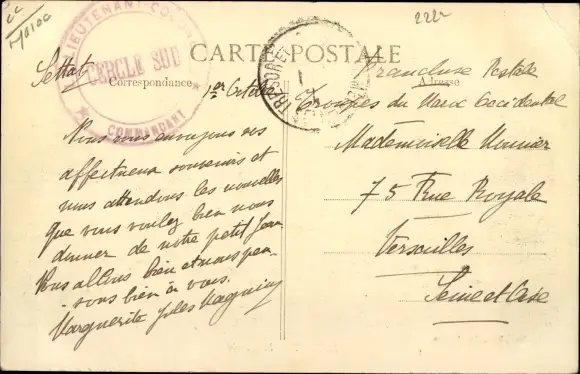 cc
Maroc
222
LIEUTENANT-COLONEL
CERCLE SUD
COMMANDANT
CARTE POSTALE
Correspondance
Adresse
TRESOR ET
Settat 1er Octobre
Nous vous envoyons nos
affectueux souvenirs et
nous attendons les nouvelles
que vous voulez bien nous
donner de notre petit Jean
Nous allons bien et nous pen-
sons bien à vous.
Marguerite Jules
Franchise Postale
Troupes du Maroc Occidental
Mademoiselle Monnier
75 Rue Royale
Versailles
Seine et Oise